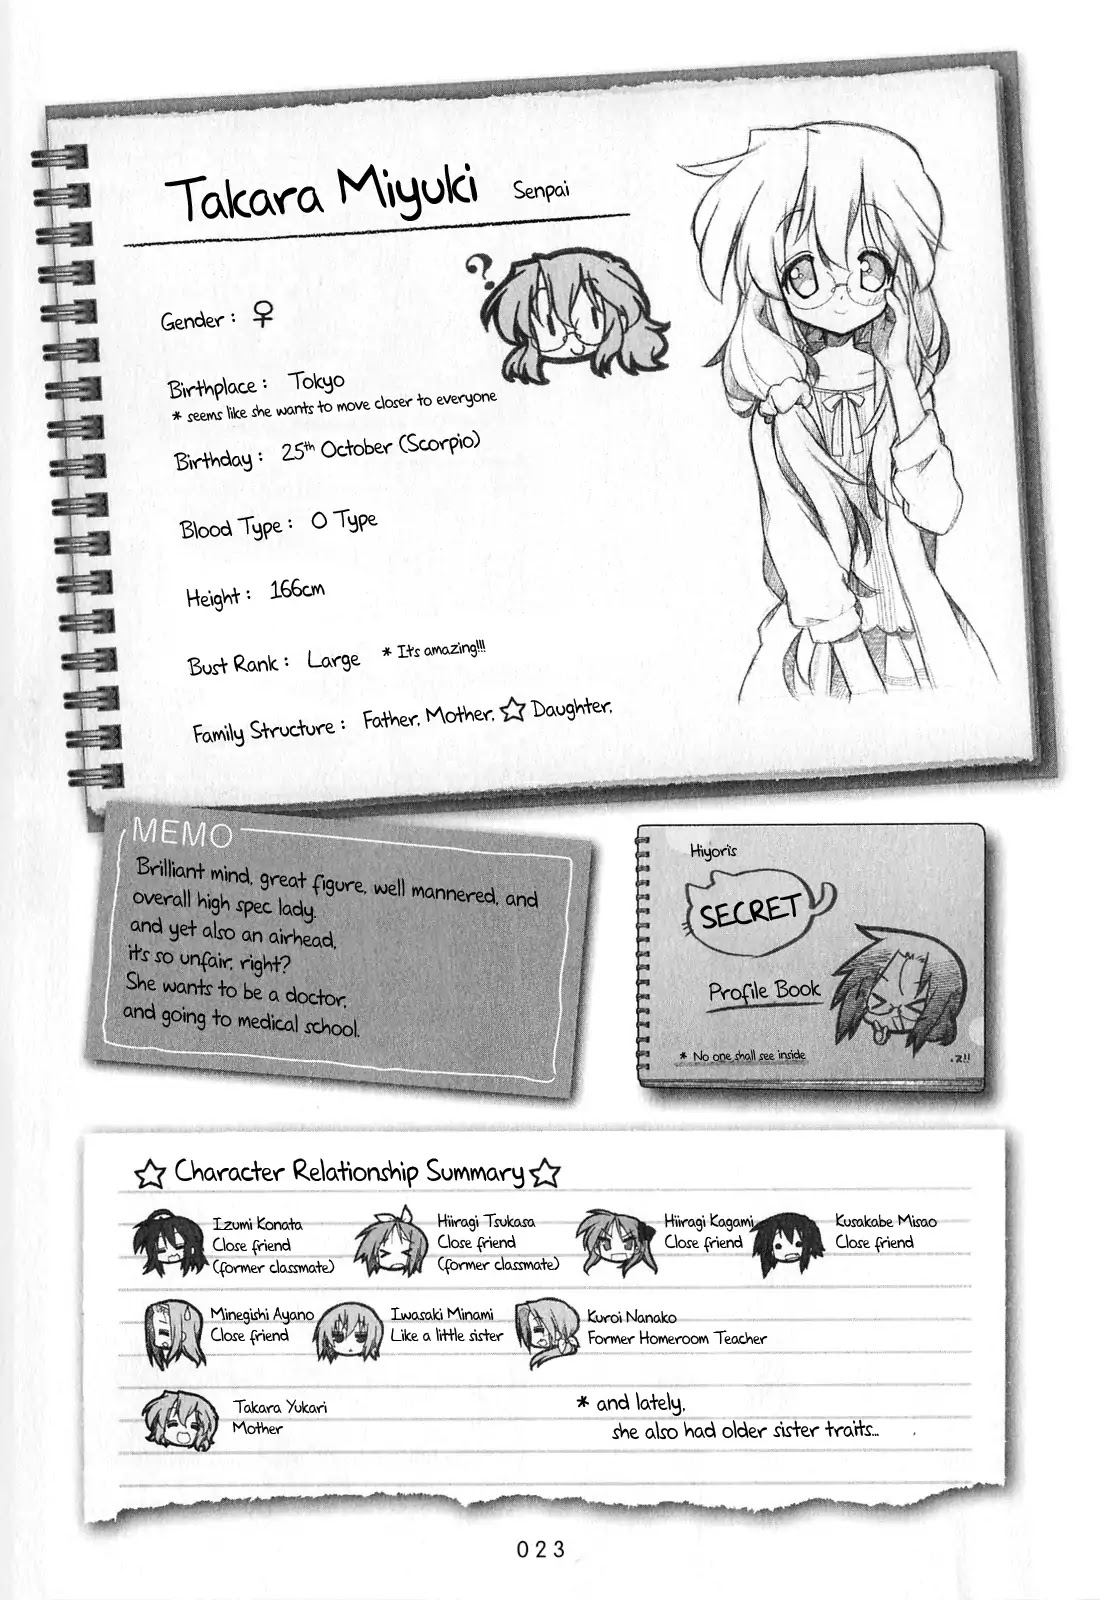 Takara Miyuki Senpai
?
Gender : ♀
Birthplace : Tokyo
* seems like she wants to move closer to everyone
Birthday : 25th October (Scorpio)
Blood Type : O Type
Height : 166cm
Bust Rank : Large * It's amazing!!!
Family Structure : Father, Mother, ☆ Daughter,
MEMO
Brilliant mind, great figure, well mannered, and
overall high spec lady.
and yet also an airhead,
it's so unfair, right?
She wants to be a doctor,
and going to medical school.
Hiyori's
SECRET
Profile Book
* No one shall see inside
☆ Character Relationship Summary ☆
Izumi Konata
Close friend
(former classmate)
Hiiragi Tsukasa
Close friend
(former classmate)
Hiiragi Kagami
Close friend
Kusakabe Misao
Close friend
Minegishi Ayano
Close friend
Iwasaki Minami
Like a little sister
Kuroi Nanako
Former Homeroom Teacher
Takara Yukari
Mother
* and lately,
she also had older sister traits...
023